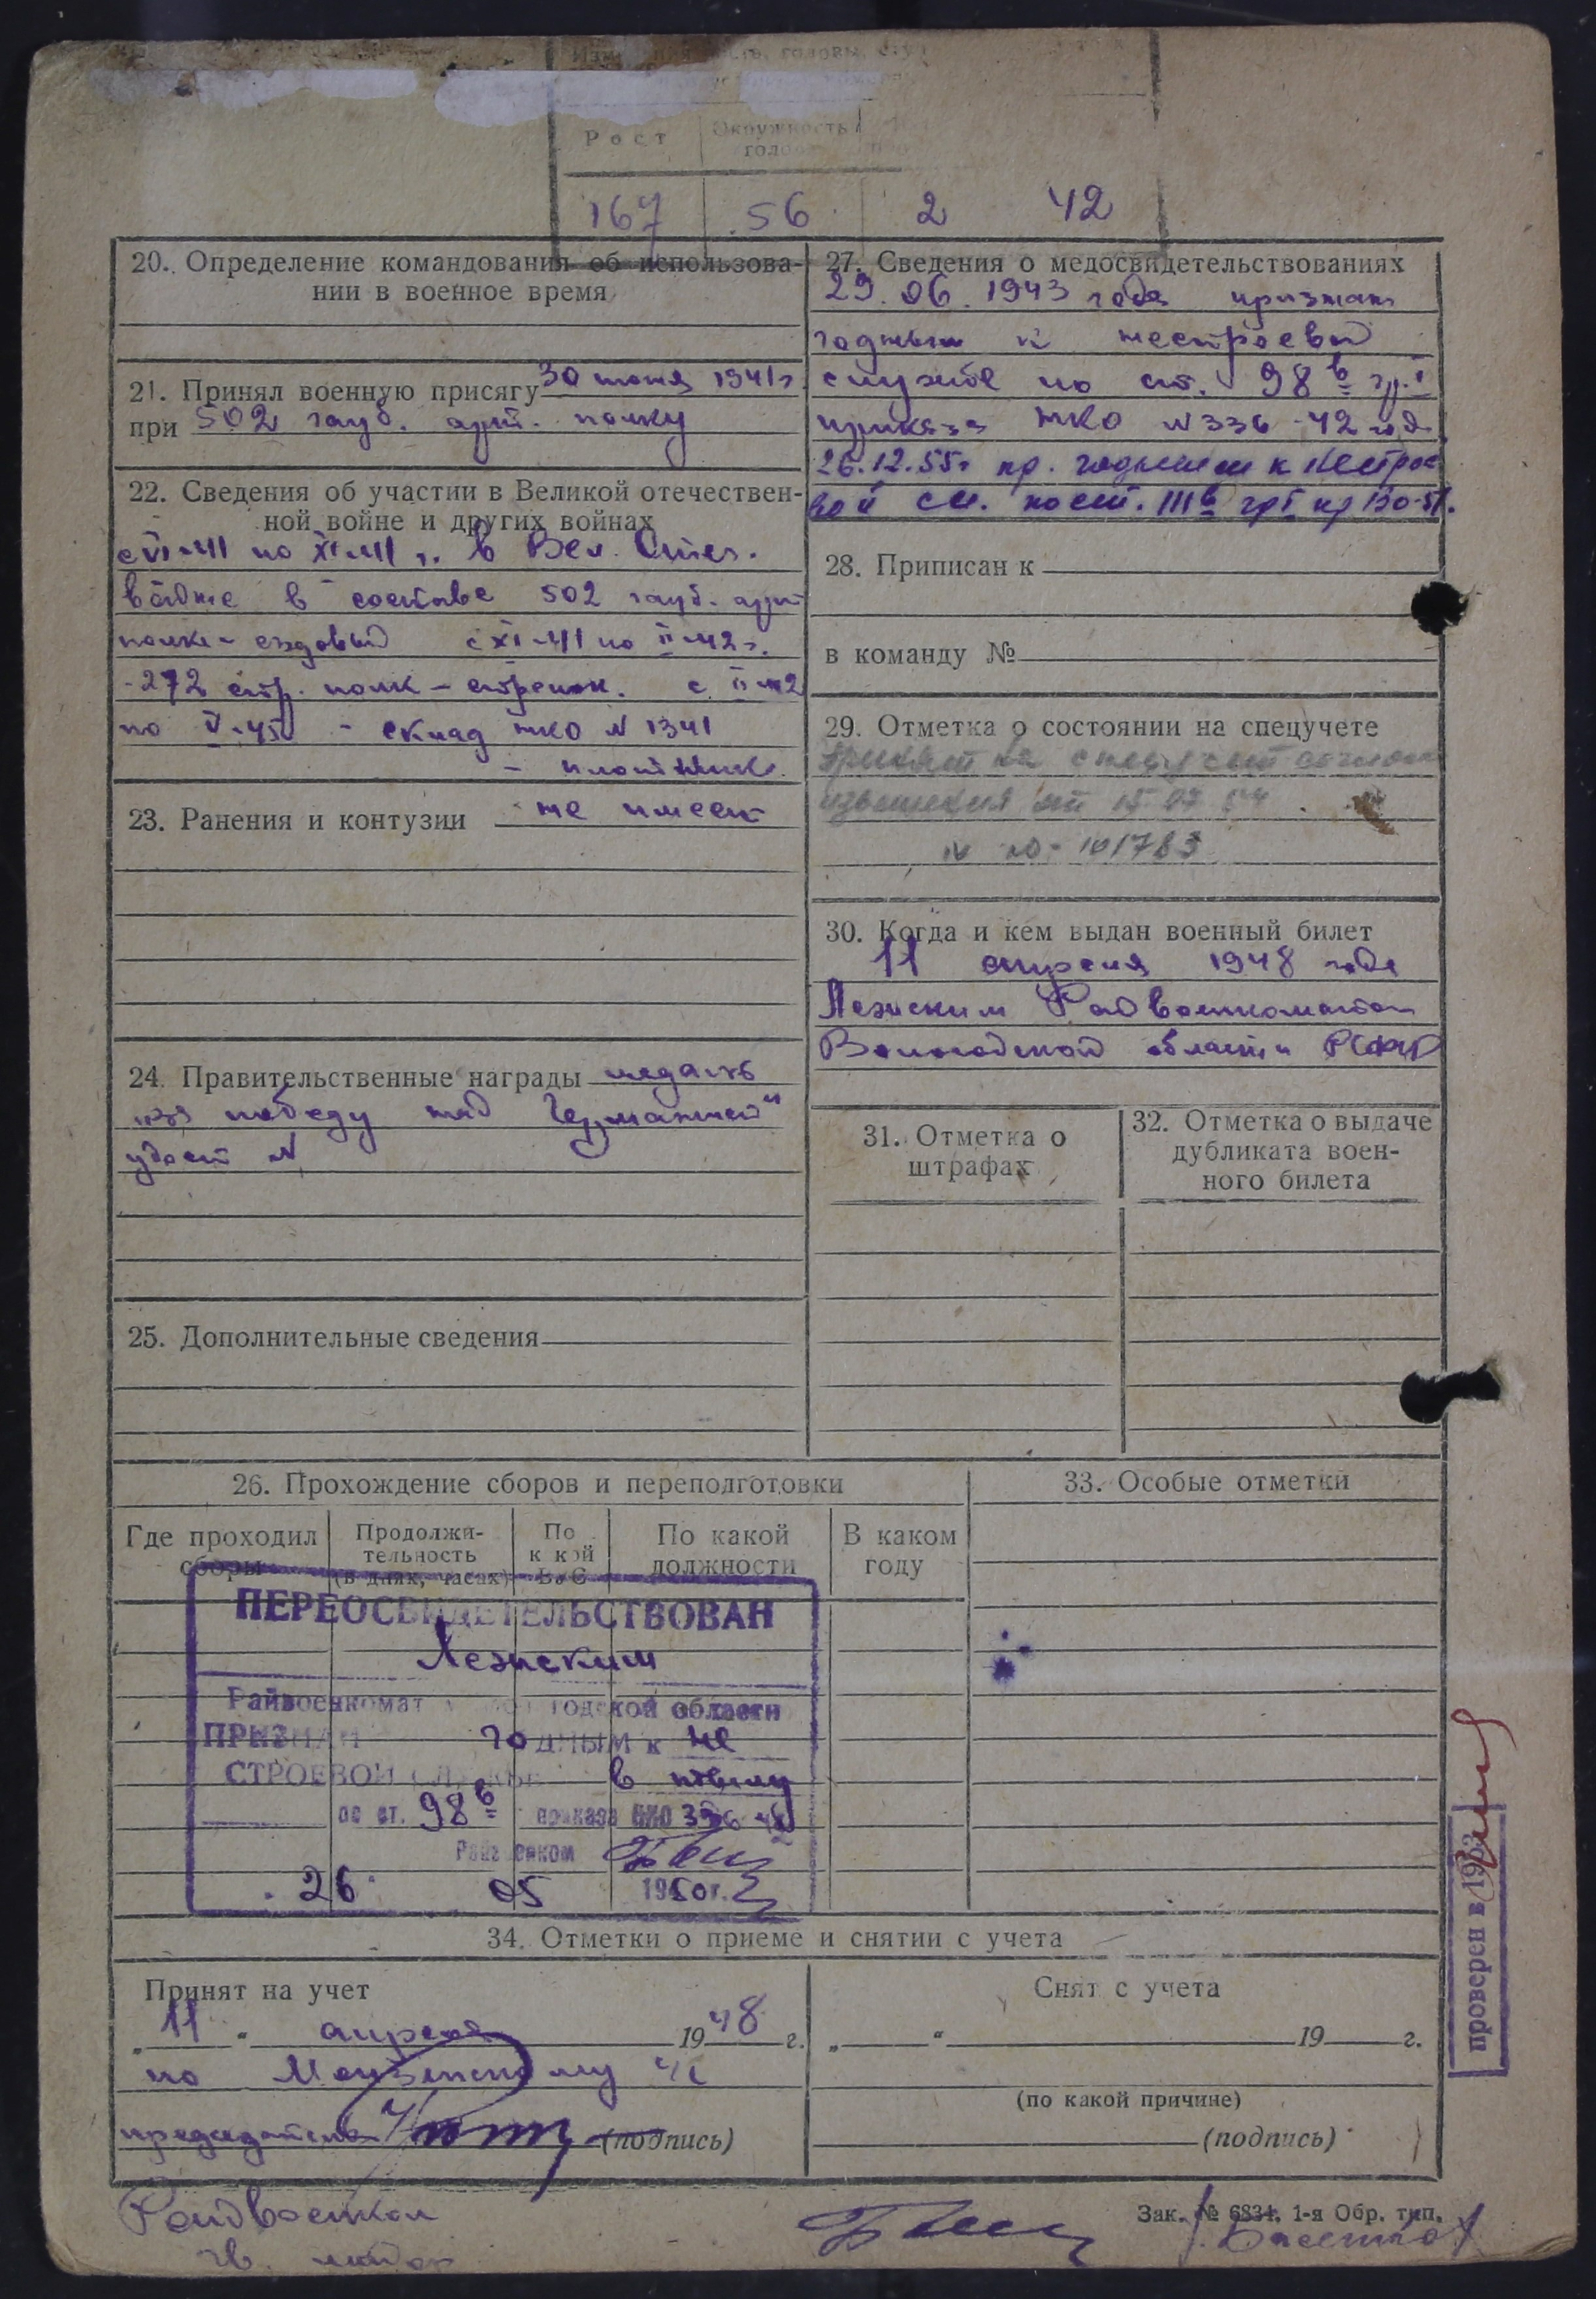 Рост
Окружность
167 56 2 42
20. Определение командования об использова-
нии в военное время
21. Принял военную присягу 30 июня 1941 г.
при 502 гауб. арт. полку
22. Сведения об участии в Великой отечествен-
ной войне и других войнах
с VI-41 по XI-41 г. в Вел. Отеч.
войне в составе 502 гауб. арт
полка - ездовый с XI-41 по II-42 г.
- 272 стр. полк - стрелок. с II-42
по V-45 - склад НКО N 1341
- плотник.
23. Ранения и контузии не имеет
24. Правительственные награды медаль
„за победу над Германией"
удост N
25. Дополнительные сведения
27. Сведения о медосвидетельствованиях
29.06.1943 года признан
годным к нестроевой
службе по ст. 98 в гр. I
приказа НКО N 336 - 42 год
26.12.55 г пр. годным к нестрое
вой сл. по ст. III в гр I пр 130-51.
28. Приписан к
в команду №
29. Отметка о состоянии на спецучете
принят на спецучет согласно
извещения от 15 07 54
N 10 - 101783
30. Когда и кем выдан военный билет
11 апреля 1948 года
Лежским Райвоенкоматом
Вологодской области РСФСР
31. Отметка о
штрафах
32. Отметка о выдаче
дубликата воен-
ного билета
26. Прохождение сборов и переподготовки
Где проходил
сборы
Продолжи-
тельность
(в днях, часах)
По
к кой
ВУС
По какой
должности
В каком
году
33. Особые отметки
ПЕРЕОСВИДЕТЕЛЬСТВОВАН
Лежским
Райвоенкомат Вологодской области
ПРИЗНАН годным к не
СТРОЕВОЙ СЛУЖБЕ в тылу
по ст. 98 в приказа НКО 336 42
Райвоенком
26 05 1950 г.
проверен в 1953
34. Отметки о приеме и снятии с учета
Принят на учет
„11" апреля 1948 г.
по с/с
председатель (подпись)
Снят с учета
„ " 19 г.
(по какой причине)
(подпись)
Зак. № 6834. 1-я Обр. тип.
Райвоенком
гв. майор